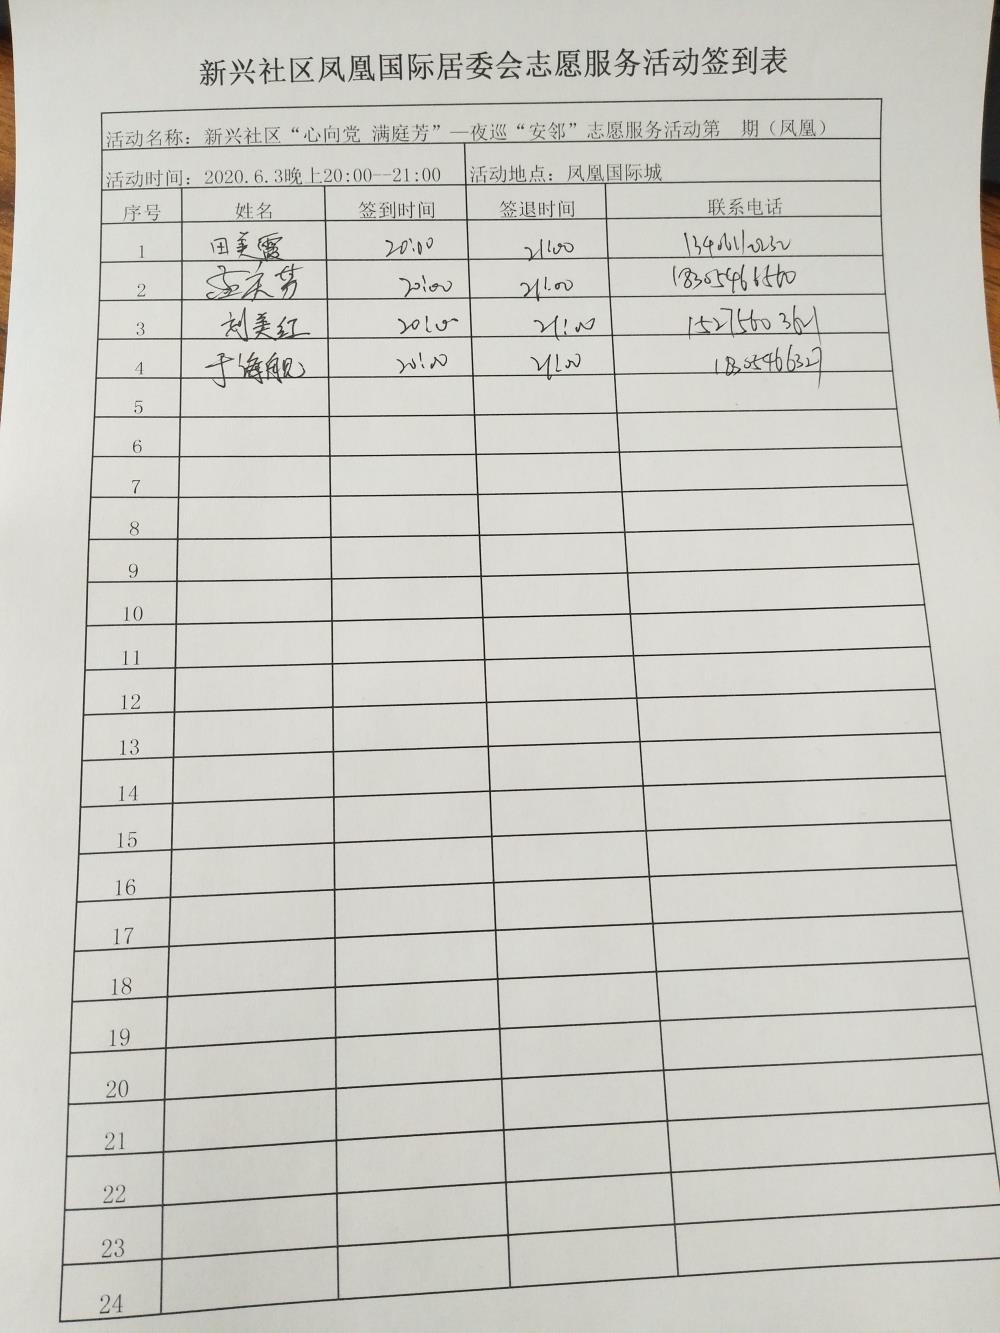 新兴社区凤凰国际居委会志愿服务活动签到表
活动名称：新兴社区“心向党 满庭芳”—夜巡“安邻”志愿服务活动第 期（凤凰）
活动时间：2020.6.3晚上20:00--21:00 活动地点：凤凰国际城
序号 姓名 签到时间 签退时间 联系电话
1 田美霞 20:00 21:00
2 20:00 21:00 18305466560
3 刘美红 20:00 21:00
4 于海舰 20:00 21:00 18305466327
5
6
7
8
9
10
11
12
13
14
15
16
17
18
19
20
21
22
23
24